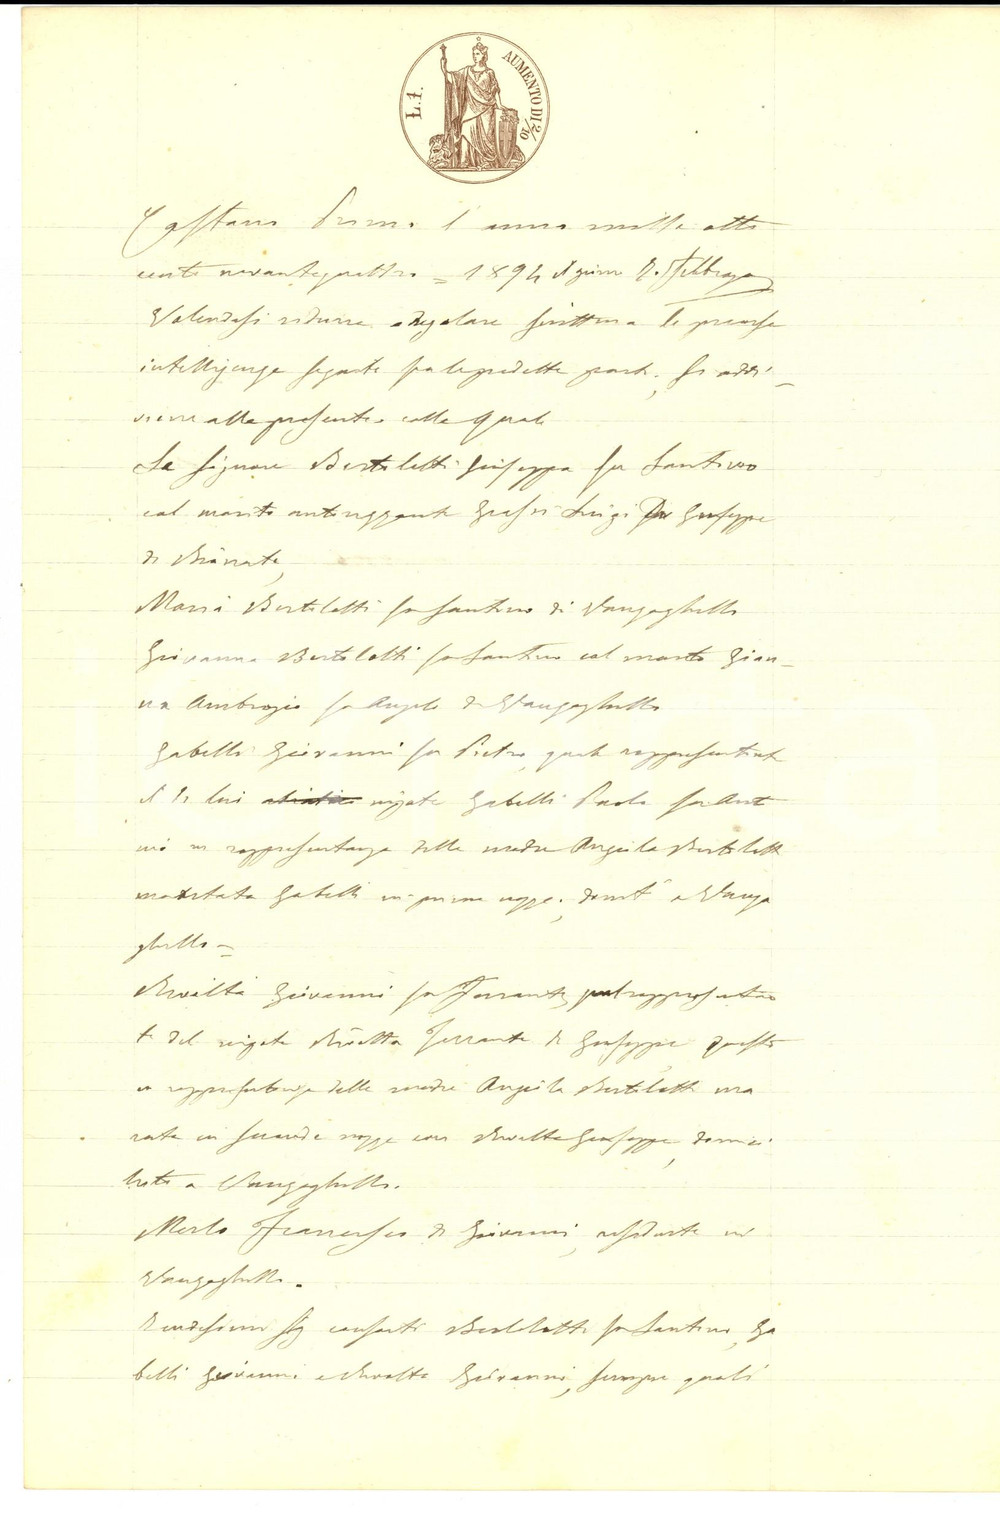 L. 1.
AUMENTO DI 2/10
Castano Primo l'anno mille otto
cento novantaquattro = 1894 il giorno Febbrajo
Volendosi ridurre a regolare scrittura le precorse
intelligenze seguite fra le predette parti, si addi-
viene alla presente colla quale
Le Signore Bertoletti Giuseppa fu Santino
col marito autorizzante Grassi Luigi Giuseppe
di Bienate,
Maria Bertoletti fu Santino di Vanzaghello
Giovanna Bertoletti fu Santino col marito Gian-
na Ambrogio fu Angelo di Vanzaghello
Gabelli Giovanni fu Pietro, quale rappresentante
di lui nipote Gabelli Paolo fu Anto
nio in rappresentanza della madre Angiola Bertoletti
maritata Gabelli in prime nozze, domt. a Vanza
ghello =
Rivolta Giovanni fu Ferrante, qual rappresentan
te del nipote Rivolta Ferrante di Giuseppe questo
in rappresentanza della madre Angiola Bertoletti ma
ritata in seconde nozze con Rivolta Giuseppe, domici
liato a Vanzaghello.
Merlo Francesco di Giovanni, residente in
Vanzaghello.
Bertoletti fu Santino, Ga
belli Giovanni e Rivolta Giovanni, sempre quali